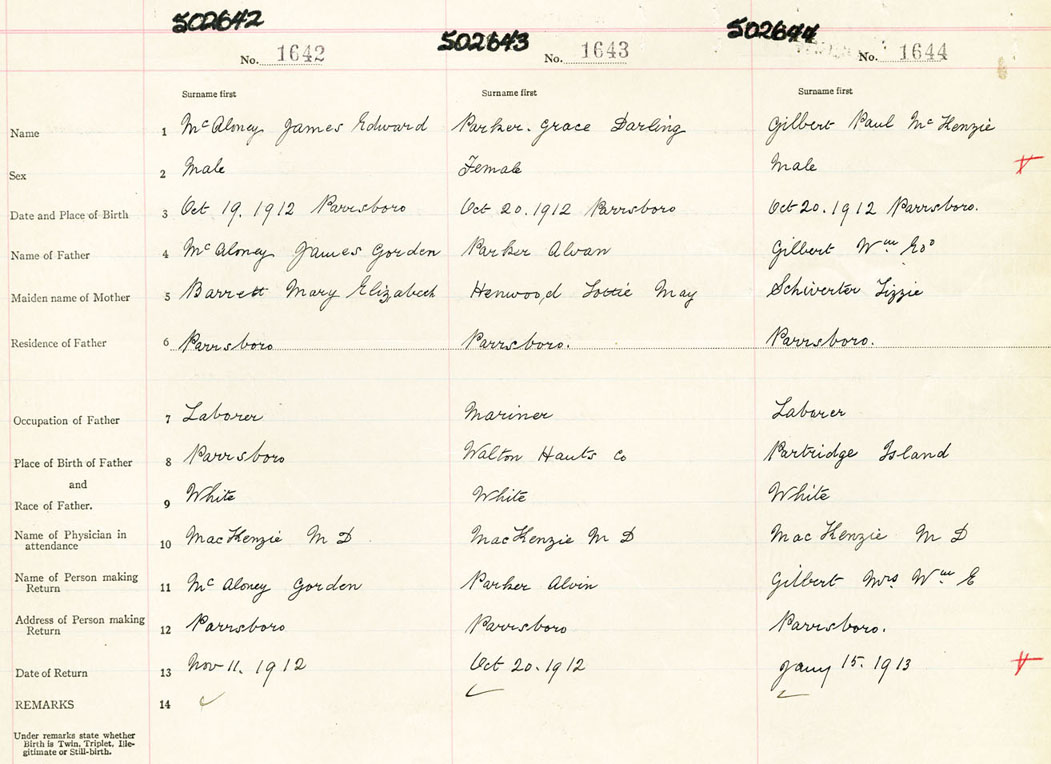 502642 502643 502644
No. 1642 No. 1643 No. 1644
Surname first Surname first Surname first
Name 1 McAloney James Edward Parker. Grace Darling Gilbert Paul McKenzie
Sex 2 Male Female Male
Date and Place of Birth 3 Oct 19. 1912 Parrsboro Oct 20. 1912 Parrsboro Oct 20. 1912 Parrsboro.
Name of Father 4 McAloney James Gorden Parker Alvan Gilbert Wm Edd
Maiden name of Mother 5 Barrett Mary Elizabeth Henwood Lottie May Schiverter Lizzie
Residence of Father 6 Parrsboro Parrsboro. Parrsboro.
Occupation of Father 7 Laborer Mariner Laborer
Place of Birth of Father 8 Parrsboro Walton Hants Co Partridge Island
and
Race of Father. 9 White White White
Name of Physician in
attendance 10 MacKenzie M D MacKenzie M D MacKenzie M D
Name of Person making
Return 11 McAloney Gorden Parker Alvin Gilbert Mrs Wm E
Address of Person making
Return 12 Parrsboro Parrsboro Parrsboro.
Date of Return 13 Nov 11. 1912 Oct 20. 1912 Jany 15. 1913
REMARKS 14
Under remarks state whether
Birth is Twin, Triplet, Ille-
gitimate or Still-birth.